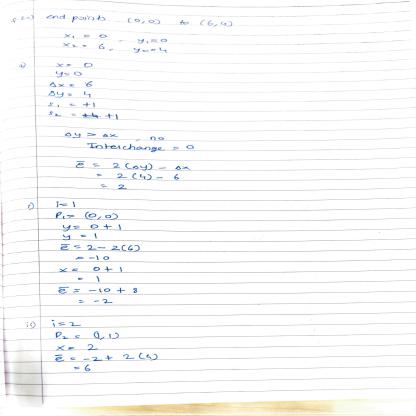 end points (0,0) to (6,4)
x₁ = 0 y₁=0
x₂ = 6, y₂=4
x = 0
y=0
Δx = 6
Δy = 4
s₁ = +1
s₂ = +1
Δy > Δx no
Interchange = 0
e̅ = 2(Δy) - Δx
= 2(4) - 6
= 2
i) i=1
P₁= (0,0)
y = 0+1
y = 1
e̅ = 2 - 2(6)
= -10
x = 0+1
= 1
e̅ = -10 + 8
= -2
ii) i=2
P₂ = (1,1)
x = 2
e̅ = -2 + 2(4)
= 6